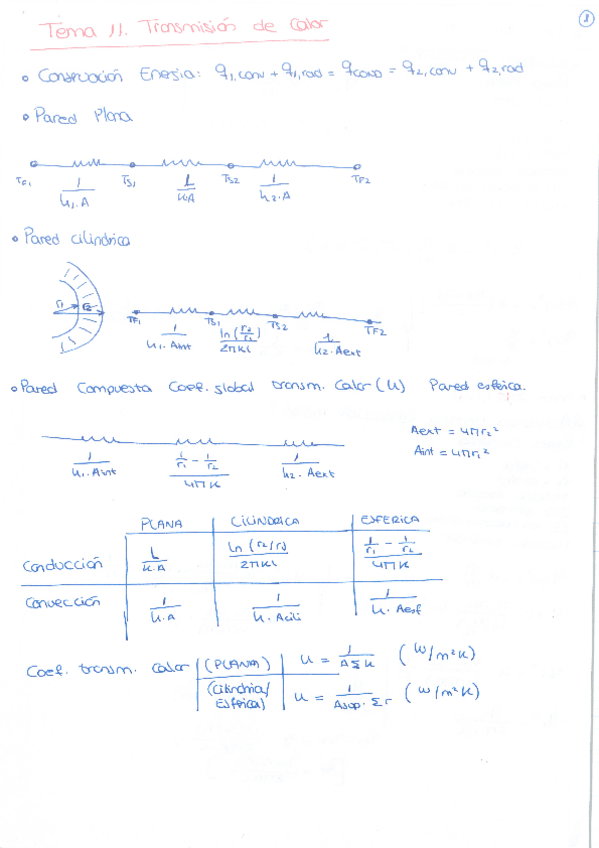 1
Tema 11. Transmisión de Calor
• Conservación Energia: q1,conv + q1,rad = qcond = q2,conv + q2,rad
• Pared Plana
TF1 1/h1.A TS1 L/k.A TS2 1/h2.A TF2
• Pared cilindrica
r1 r2 TF1 1/h1.Aint TS1 ln(r2/r1)/2πkl TS2 1/h2.Aext TF2
• Pared Compuesta Coef. global transm. Calor (U) Pared esferica.
Aext = 4πr2²
Aint = 4πr1²
1/h1.Aint (1/r1 - 1/r2)/4πk 1/h2.Aext
PLANA CILINDRICA ESFERICA
Conducción L/k.A ln(r2/r1)/2πkl (1/r1 - 1/r2)/4πk
Convección 1/h.A 1/h.Acili 1/h.Aesf
Coef. transm. Calor (PLANA) U = 1/AΣR (W/m²K)
(Cilindrica/Esferica) U = 1/Asup.Σr (W/m²K)